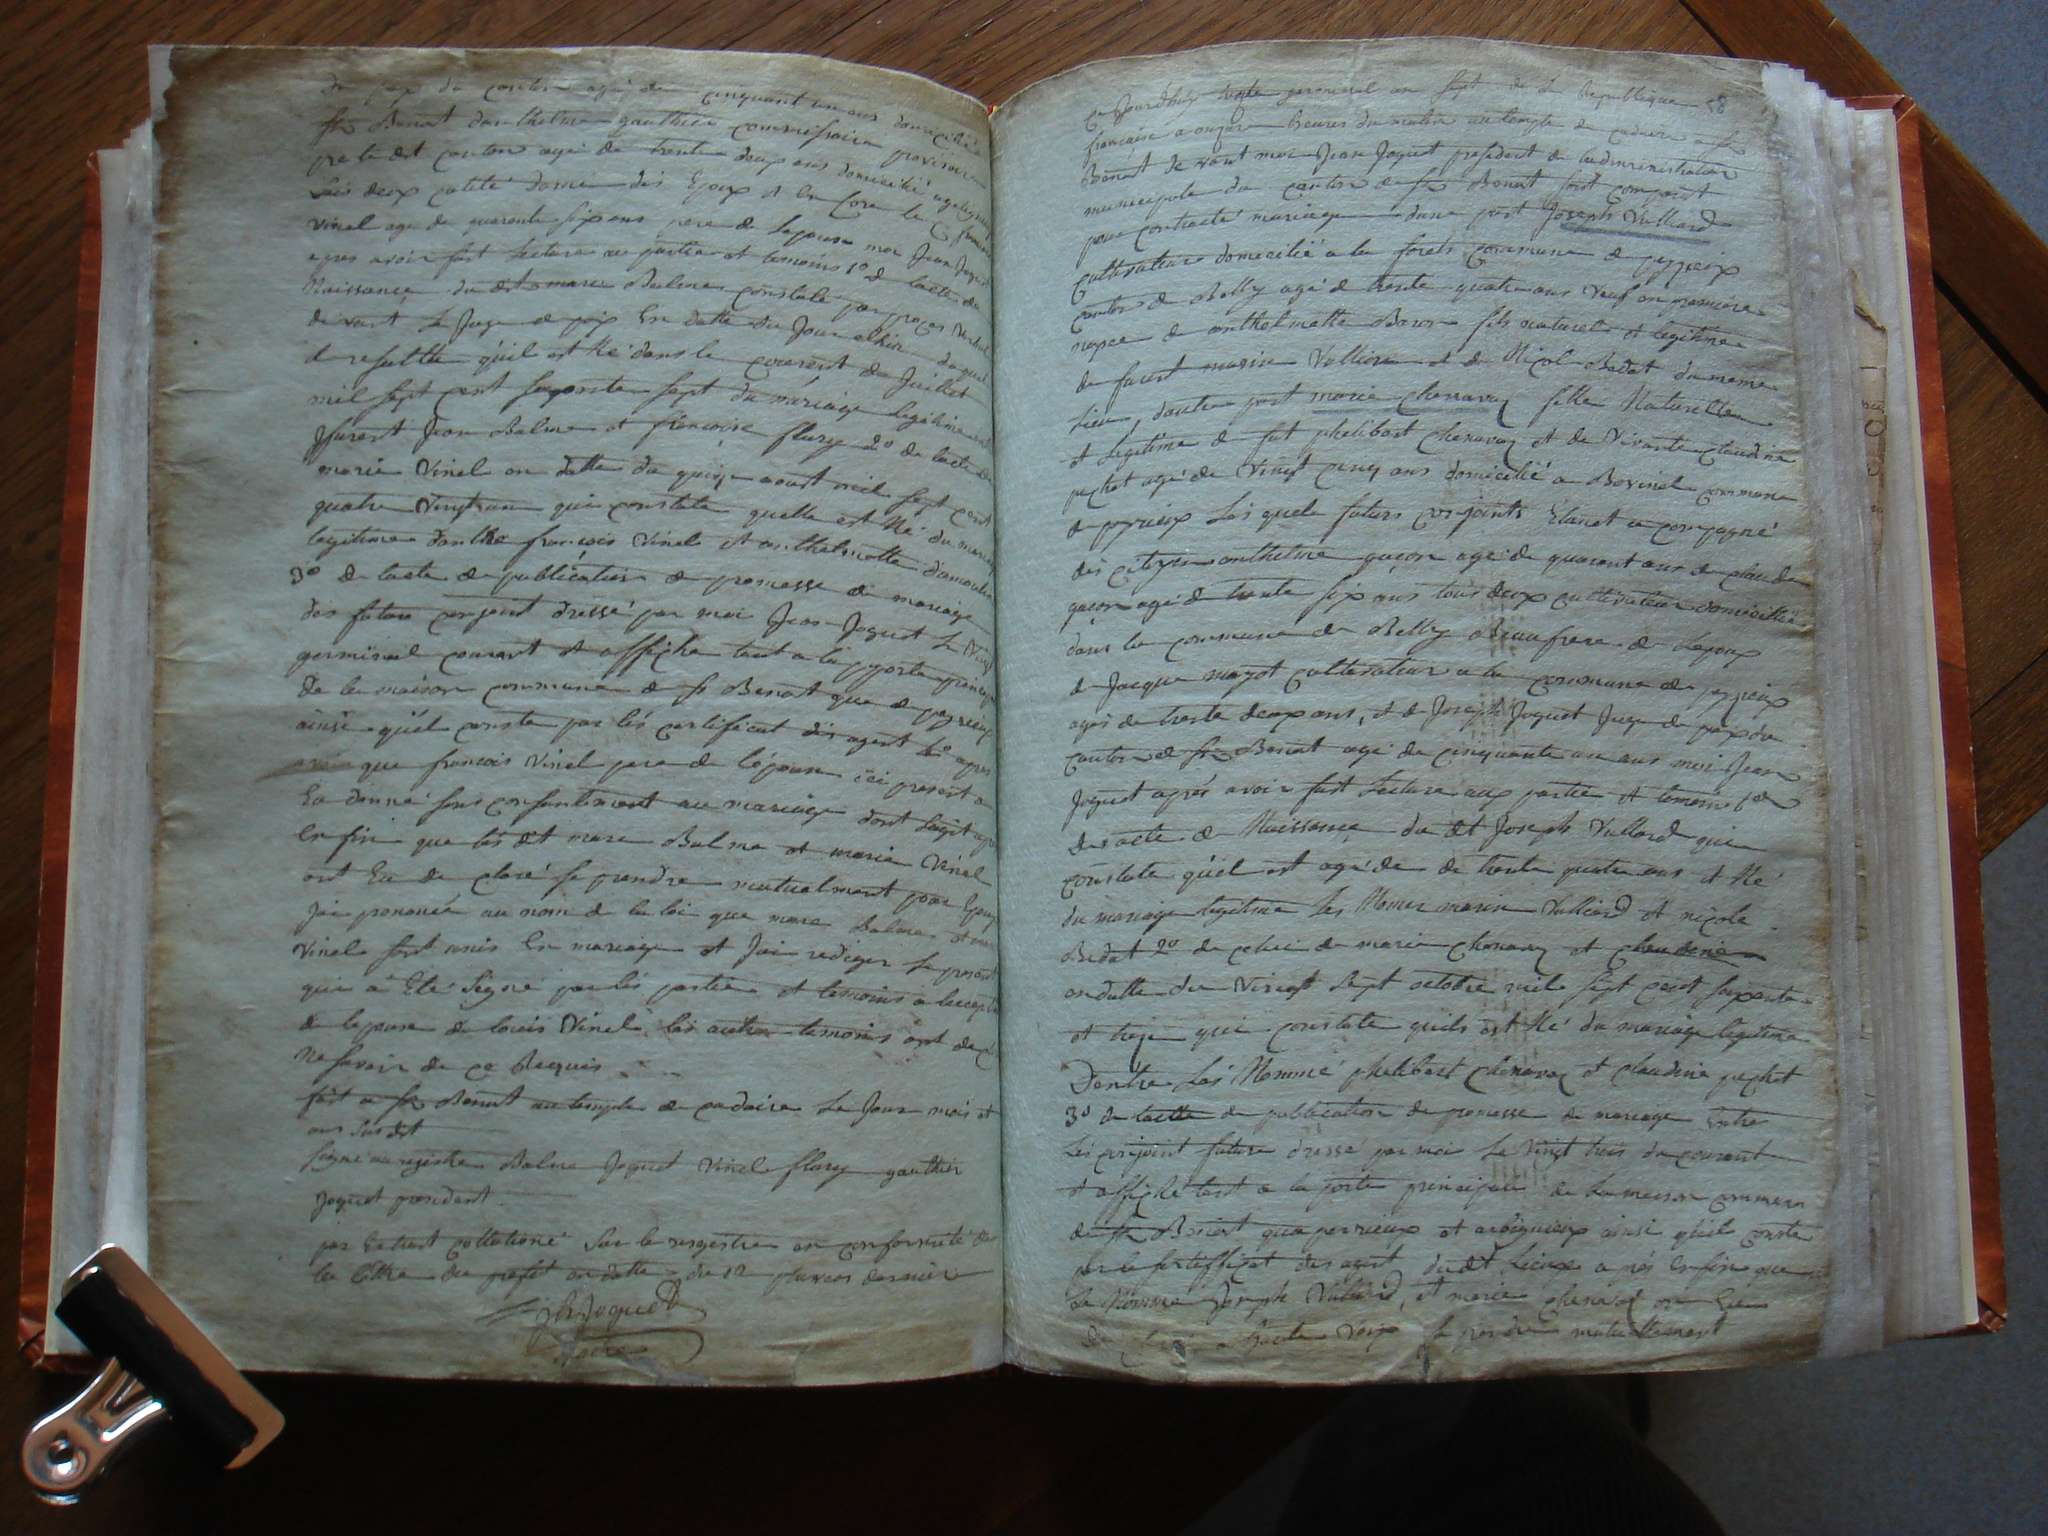 de paix du canton agé de cinquant un ans domicilié a
st Benoit danthelme gauthier commissaire provisoire
pre le dit canton agé de trente deux ans domicilié
Les deux cotité domie des Epoux et En Core le C francois
Vinel age de quarente six ans pere de lepouse moi Jean Joguet
apres avoir fait lecture au partie et temoins 1º de lacte de
Naissance du dit marc Balme constaté par proces verbal
devant Le Juge de paix En datte du Jour dhier duquel
il resulte quil est Né dans le courent de Juillet
mil sept cent soixante sept du mariage legitime
Jean Balme et francoise fleury 2º de lacte de
marie Vinel en datte du quinze aoust mil sept cent
quatre Vingt un qui constate quelle est Né du mariage
legitime dentre francois Vinel et anthelmette
3º de lacte de publication de promesse de mariage
des futurs conjoint dressé par moi Jean Joguet Le Vingt
germinal courant et affiche tant a la pporte principale
De la maison commune de st Benoit que de peyrieux
ainsi quil conste par lés certificat dés agent 4º apres
que francois Vinel pere de lépouse ici present a
Eu donné sons consentiment au mariage dont sagit apres
Enfin que lés dit marc Balme et marie Vinel
ont Eu de claré se prendre mutualment pour Epoux
Jai prononcé au nom de la loi que marc Balme et marie
Vinel sont unis En mariage et Jai rediger Le present
qui à Eté Signé par lés partie et temoins a lexception
de lepouse de louis Vinel lés autre temoins ont de
Ne savoir de ce Requis
fait a st Benoit au temple de cadaire Le Jour mois et
ans susdit
signé au registre Balme Joguet Vinel flury gauthier
Joguet president
par Extrait collationé sur le regestre en conformité de
la lettre du prefet en datte du 12 pluvios dernier
Joguet
maire
58
Ce Jourdhuy germinal an sept de la Republique
francaise a onze heures du matin au temple de cadaire a st
Benoit de vant moi Jean Joguet president de ladministration
municipale du canton de st Benoit sont comparut
pour contracté mariage dune part Joseph Vullard
cultivateur domicilié a la forets commune de peyzieux
canton de Belley agé de trente quatre ans veuf en premiere
nopce de anthelmette Baron fils naturel et legitime
de feu marin Vulliard et de Nicole Bedat du meme
Lieu, dautre part marie Chenavaz fille Naturelle
et Legitime de fut phelibert Chenavaz et de Vivante claudine
pechet agé de Vingt cinq ans domicilié a Bovinel commune
de peyrieux Les quels futurs conjoints Etanet a compagné
des citoyen anthelme gaçon age de quarant ans de claude
gaçon agé de trente six ans tous deux cultivateur domicillié
dans la commune de Belley Beaufrere de Lepoux
de Jacque mazot cultivateur a la commune de peyzieux
agés de trente deux ans, et de Joseph Joguet Juge de paix du
canton de st Benoit agé de cinquante un ans moi Jean
Joguet aprés avoir fait Lecture aux partie et temoins 1º
de lacte de Naissance du dit Joseph Vullard qui
constate quil est agé de de trente quatre ans et Né
du mariage legitime Les Nomer marin Vulliard et nicole
Bedat 2º de celui de marie Chenavaz et claudine
en datte du Vingt Sept octobre mil sept cent soixante
et treze qui constate quils est Né du mariage legitime
Dentre Lés Nommé phelibert Chenavaz et claudine pechet
3º de lacte de publication de promesse de mariage Entre
Lés conjoint futurs dressé par moi Le Vingt trois du courant
et affiché tant a la porte principale de La maison commun
de st Benoit qua perrieux et arbignieux ainsi quil conste
par le sertifficat des agent du dit Lieux aprés Enfin que
Le Nomme Joseph Vullard, et marie Chenavaz on Eu
a haute Voix se prendre mutuellement